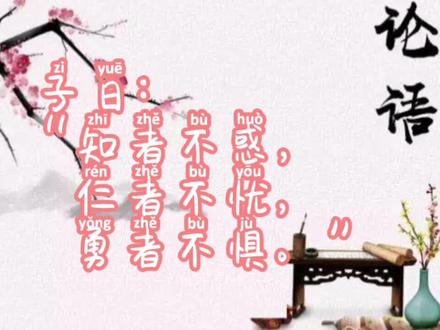 论语
zǐ yuē
子曰：
zhī zhě bù huò
"知者不惑，
rén zhě bù yōu
仁者不忧，
yǒng zhě bù jù
勇者不惧。"